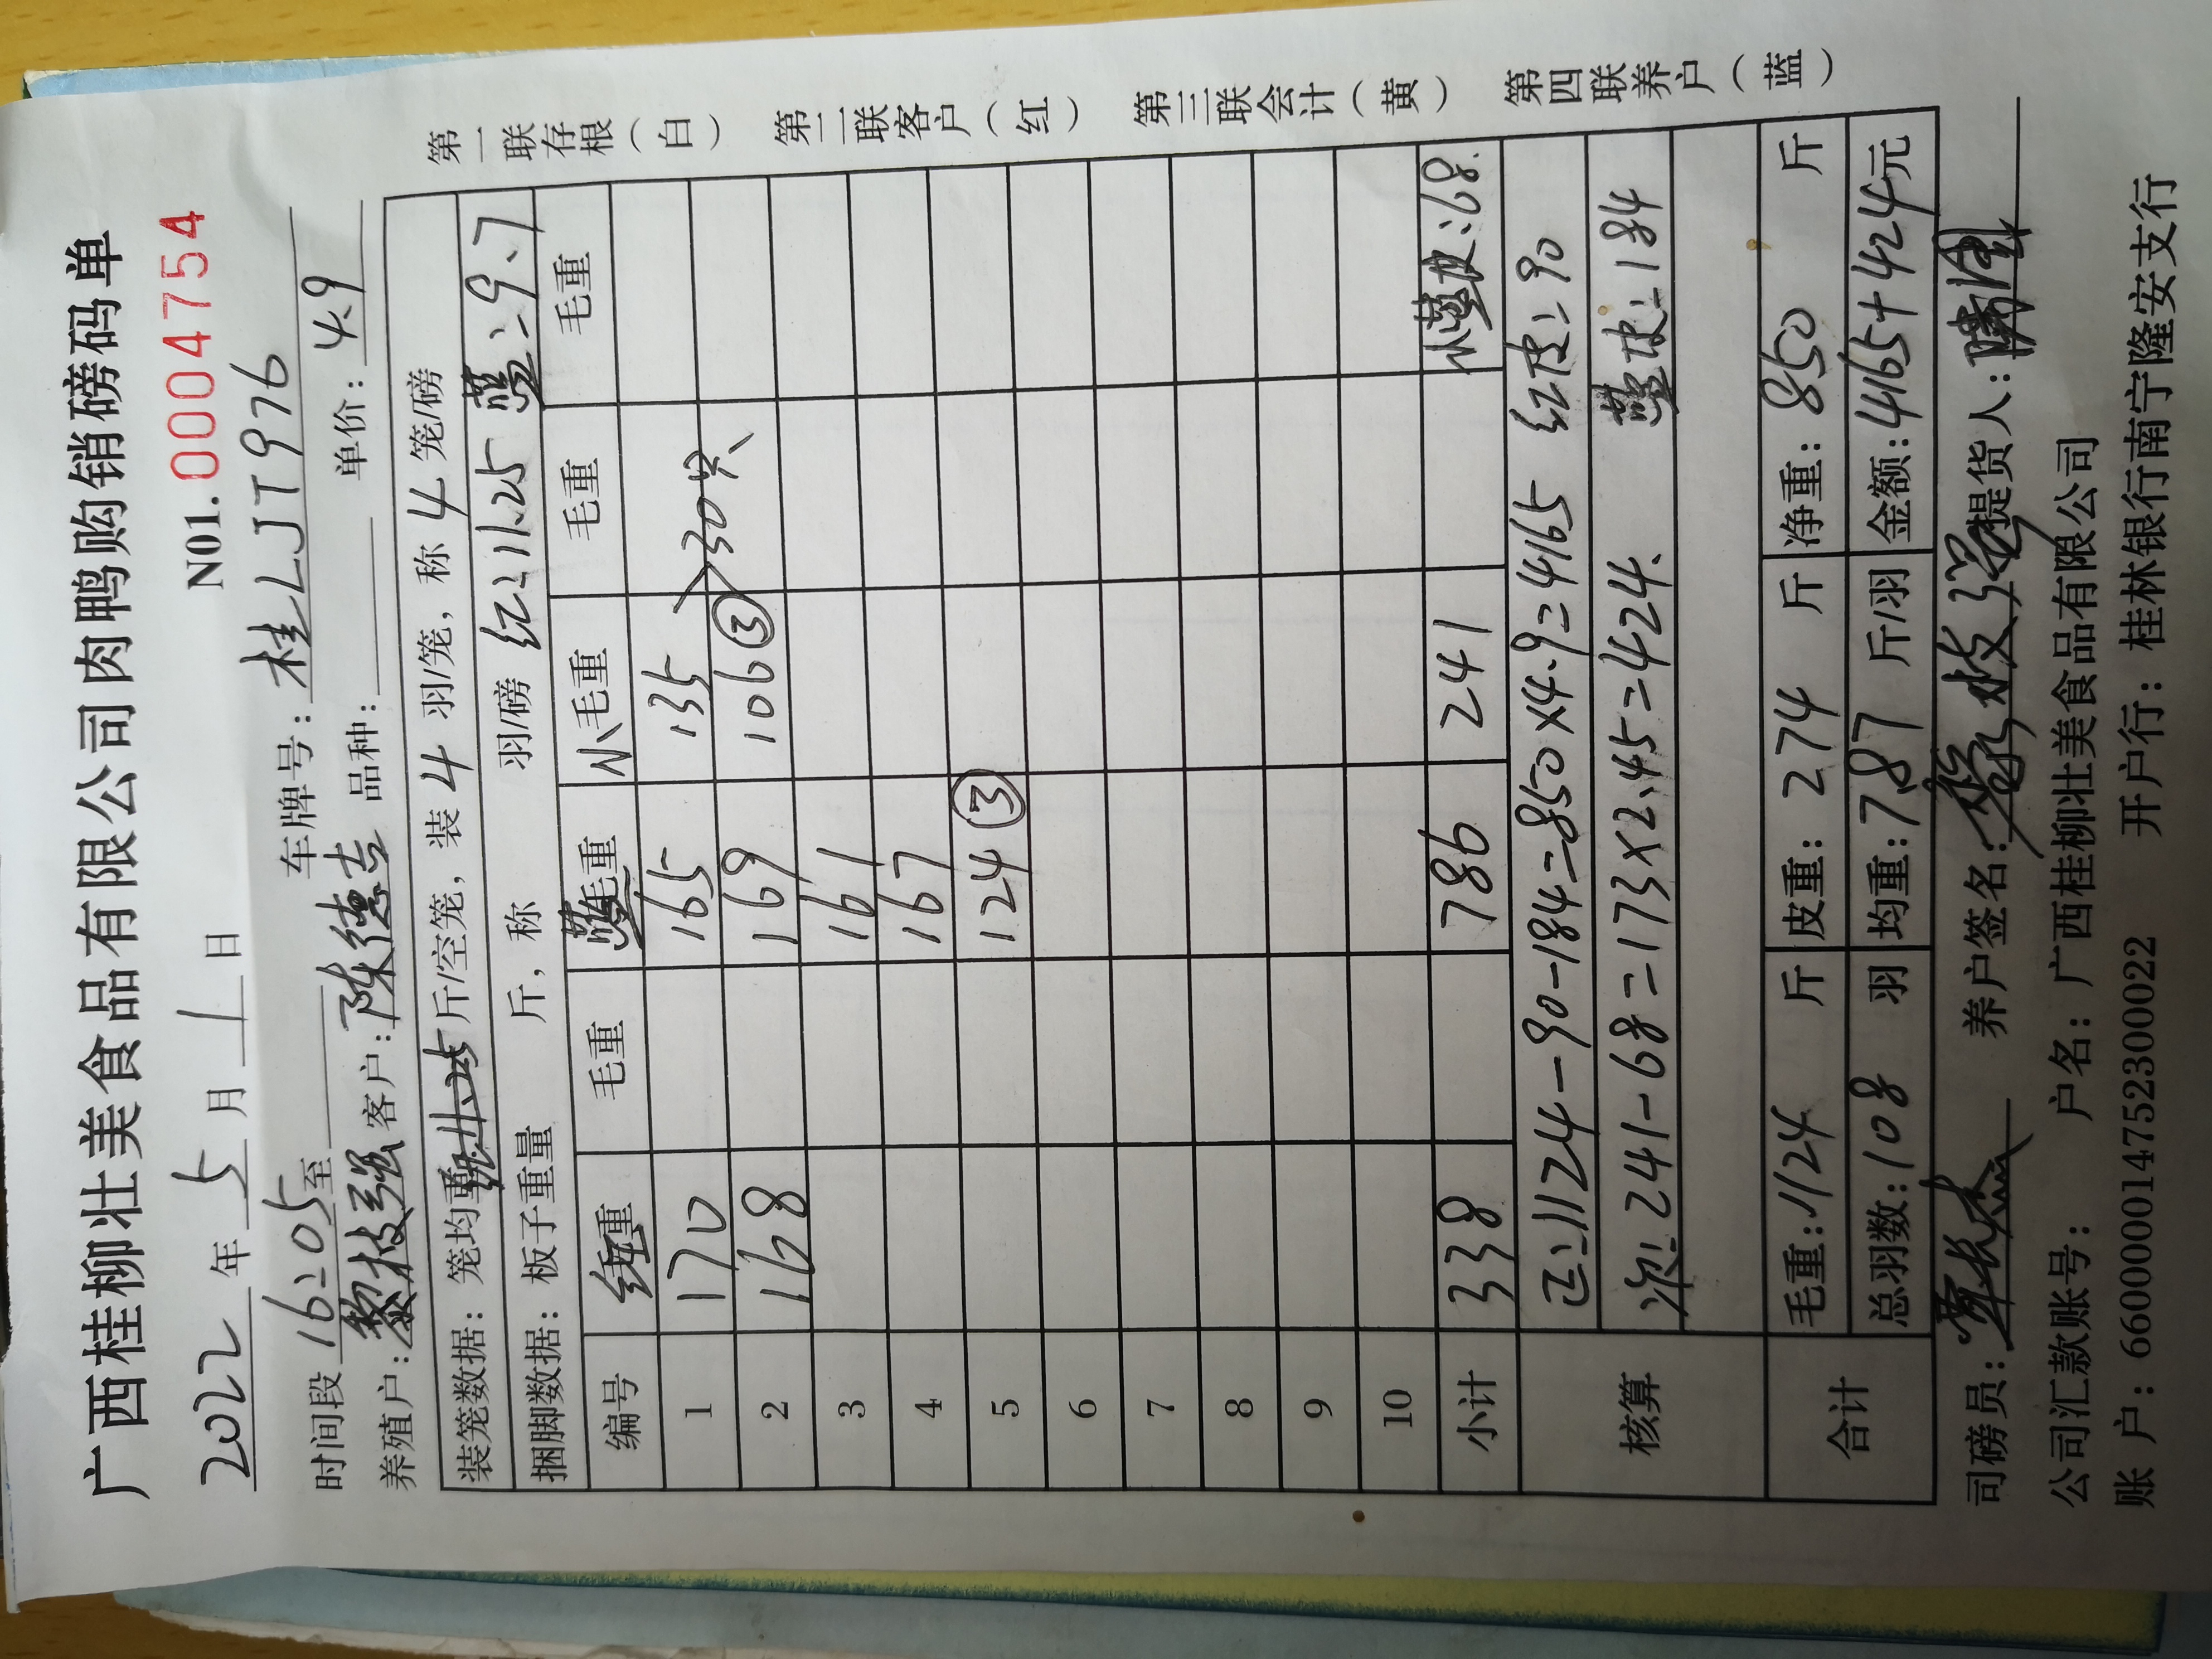 广西桂柳壮美食品有限公司肉鸭购销磅码单
2022 年 5 月 1 日 N01.0004754
时间段 16:05 至 车牌号: 桂LJT976
养殖户: 黎枝强 客户: 陈德吉 品种: 单价: 4.9
装笼数据: 笼均重 斤/空笼, 装 4 羽/笼, 称 4 笼/磅
捆脚数据: 板子重量 斤, 称 羽/磅 红:11.25 蓝:9.7
编号 红重 毛重 蓝毛重 小毛重 毛重 毛重
1 170 165 135
2 168 169 106 ③ >30只
3 161
4 167
5 124 ③
6
7
8
9
10
小计 338 786 241 小蓝皮:68.
核算 正:1124-90-184=850×4.9=4165 红皮:90
次:241-68=173×2.45=424. 蓝皮:184
合计 毛重: 1124 斤 皮重: 274 斤 净重: 850 斤
总羽数: 108 羽 均重: 7.87 斤/羽 金额: 4165+424元
司磅员: 养户签名: 黎枝强 提货人:
公司汇款账号: 户名: 广西桂柳壮美食品有限公司
账 户: 660000014752300022 开户行: 桂林银行南宁隆安支行
第一联存根(白) 第二联客户(红) 第三联会计(黄) 第四联养户(蓝)